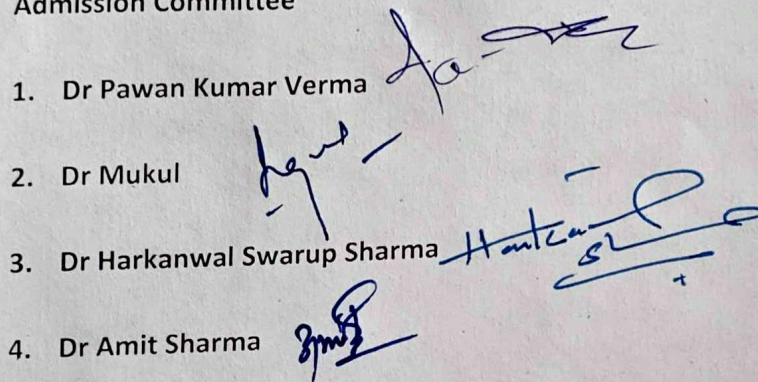 Admission Committee
1. Dr Pawan Kumar Verma
2. Dr Mukul
3. Dr Harkanwal Swarup Sharma
4. Dr Amit Sharma